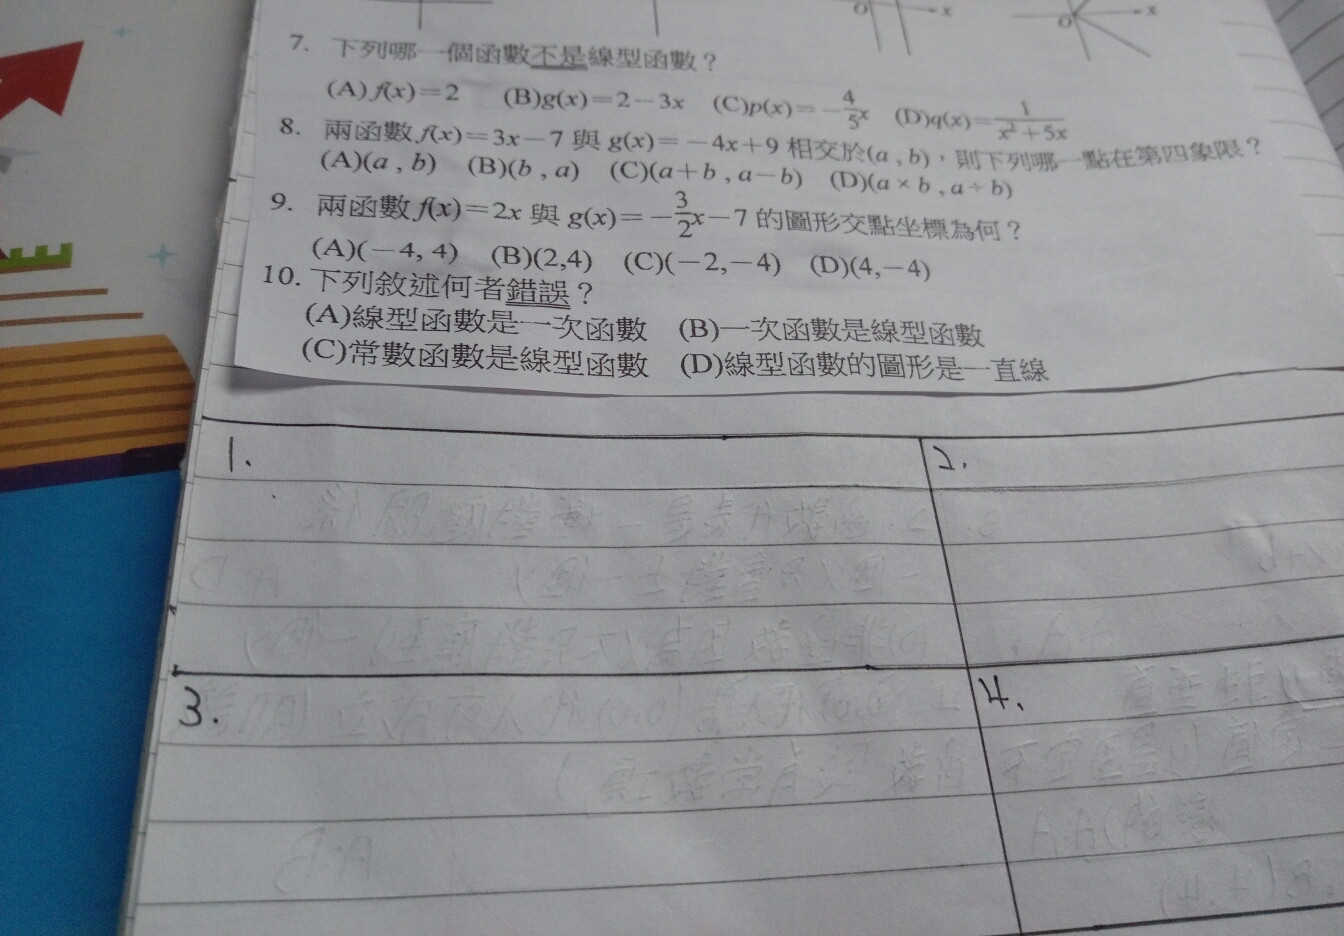 O x O x
7. 下列哪一個函數不是線型函數？
(A) f(x)=2 (B)g(x)=2-3x (C)p(x)=-4/5x (D)q(x)=1/(x²+5x)
8. 兩函數 f(x)=3x-7 與 g(x)=-4x+9 相交於(a , b)，則下列哪一點在第四象限？
(A)(a , b) (B)(b , a) (C)(a+b , a-b) (D)(a×b , a÷b)
9. 兩函數 f(x)=2x 與 g(x)=-3/2x-7 的圖形交點坐標為何？
(A)(-4, 4) (B)(2,4) (C)(-2,-4) (D)(4,-4)
10. 下列敘述何者錯誤？
(A)線型函數是一次函數 (B)一次函數是線型函數
(C)常數函數是線型函數 (D)線型函數的圖形是一直線
1. 2.
3. 4.